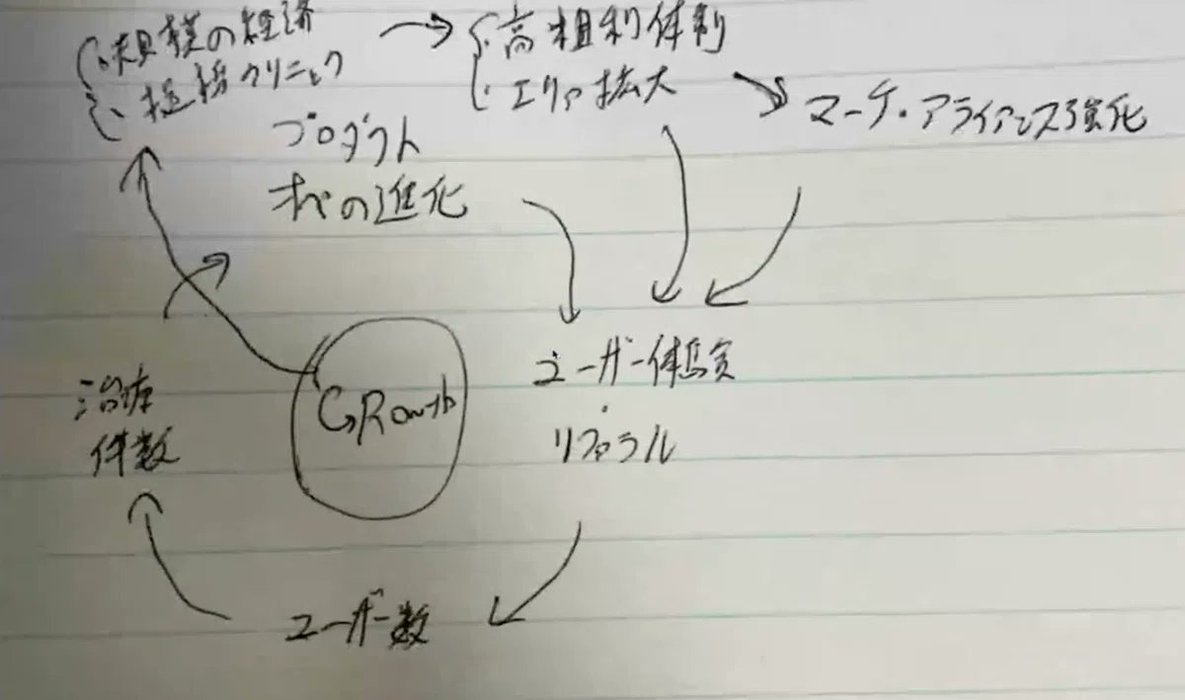 ・規模の経済
・提携クリニック
・高粗利体制
・エリア拡大
マーケ・アライアンス強化
プロダクト
オペの進化
ユーザー体験
・
リファラル
GRowth
治療
件数
ユーザー数